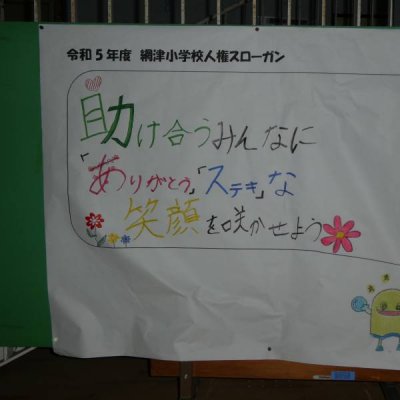 令和5年度 網津小学校人権スローガン
助け合うみんなに
「ありがとう」「ステキ」な
笑顔を咲かせよう